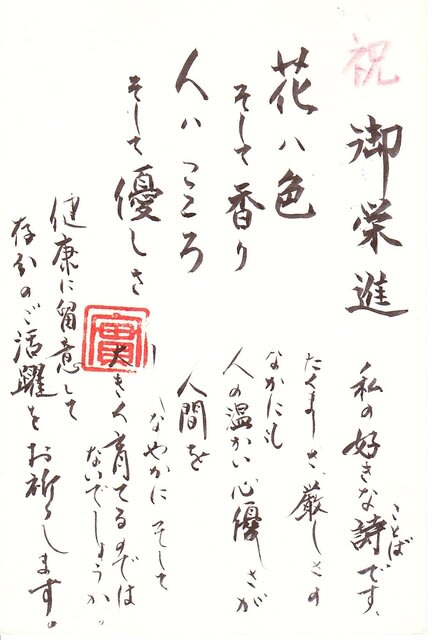 祝 御栄進
花ハ色
そして香り
人ハこころ
そして優しさ
私の好きな詩です、
ことば
たくましさ、厳しさの
なかにも
人の温かい心優しさが
人間を
しなやかに そして
大きく育てるのでは
ないでしょうか。
健康に留意して
存分のご活躍をお祈りします。
實